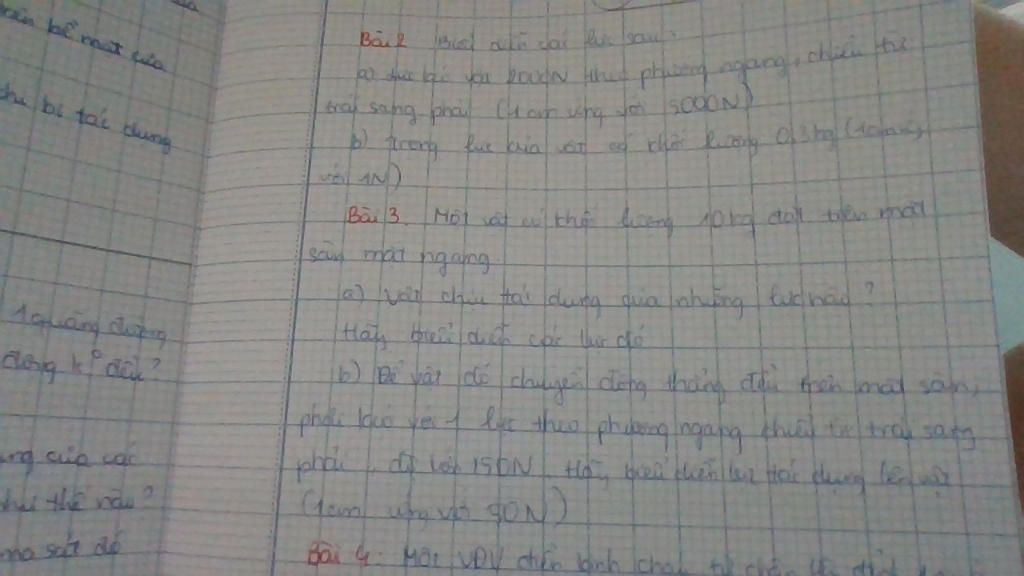 trên bề mặt của
tác dụng
Bài 2 Biểu diễn các lực sau:
a) theo phương ngang, chiều từ
trái sang phải (1cm ứng với 5000N)
b) trọng lực của vật có khối lượng
với 1N)
Bài 3. Một vật có khối lượng 10kg đặt trên mặt
sàn mặt ngang
a) Vật chịu tác dụng của những lực nào?
Hãy biểu diễn các lực đó
b) Để vật đó chuyển động thẳng đều trên mặt sàn,
phải kéo với 1 lực theo phương ngang chiều từ trái sang
phải, độ lớn 150N. Hãy biểu diễn lực tác dụng lên vật
(1cm ứng với N)
quãng đường
động k° đều?
của các
như thế nào?
ma sát đó
Bài 4. Một VĐV